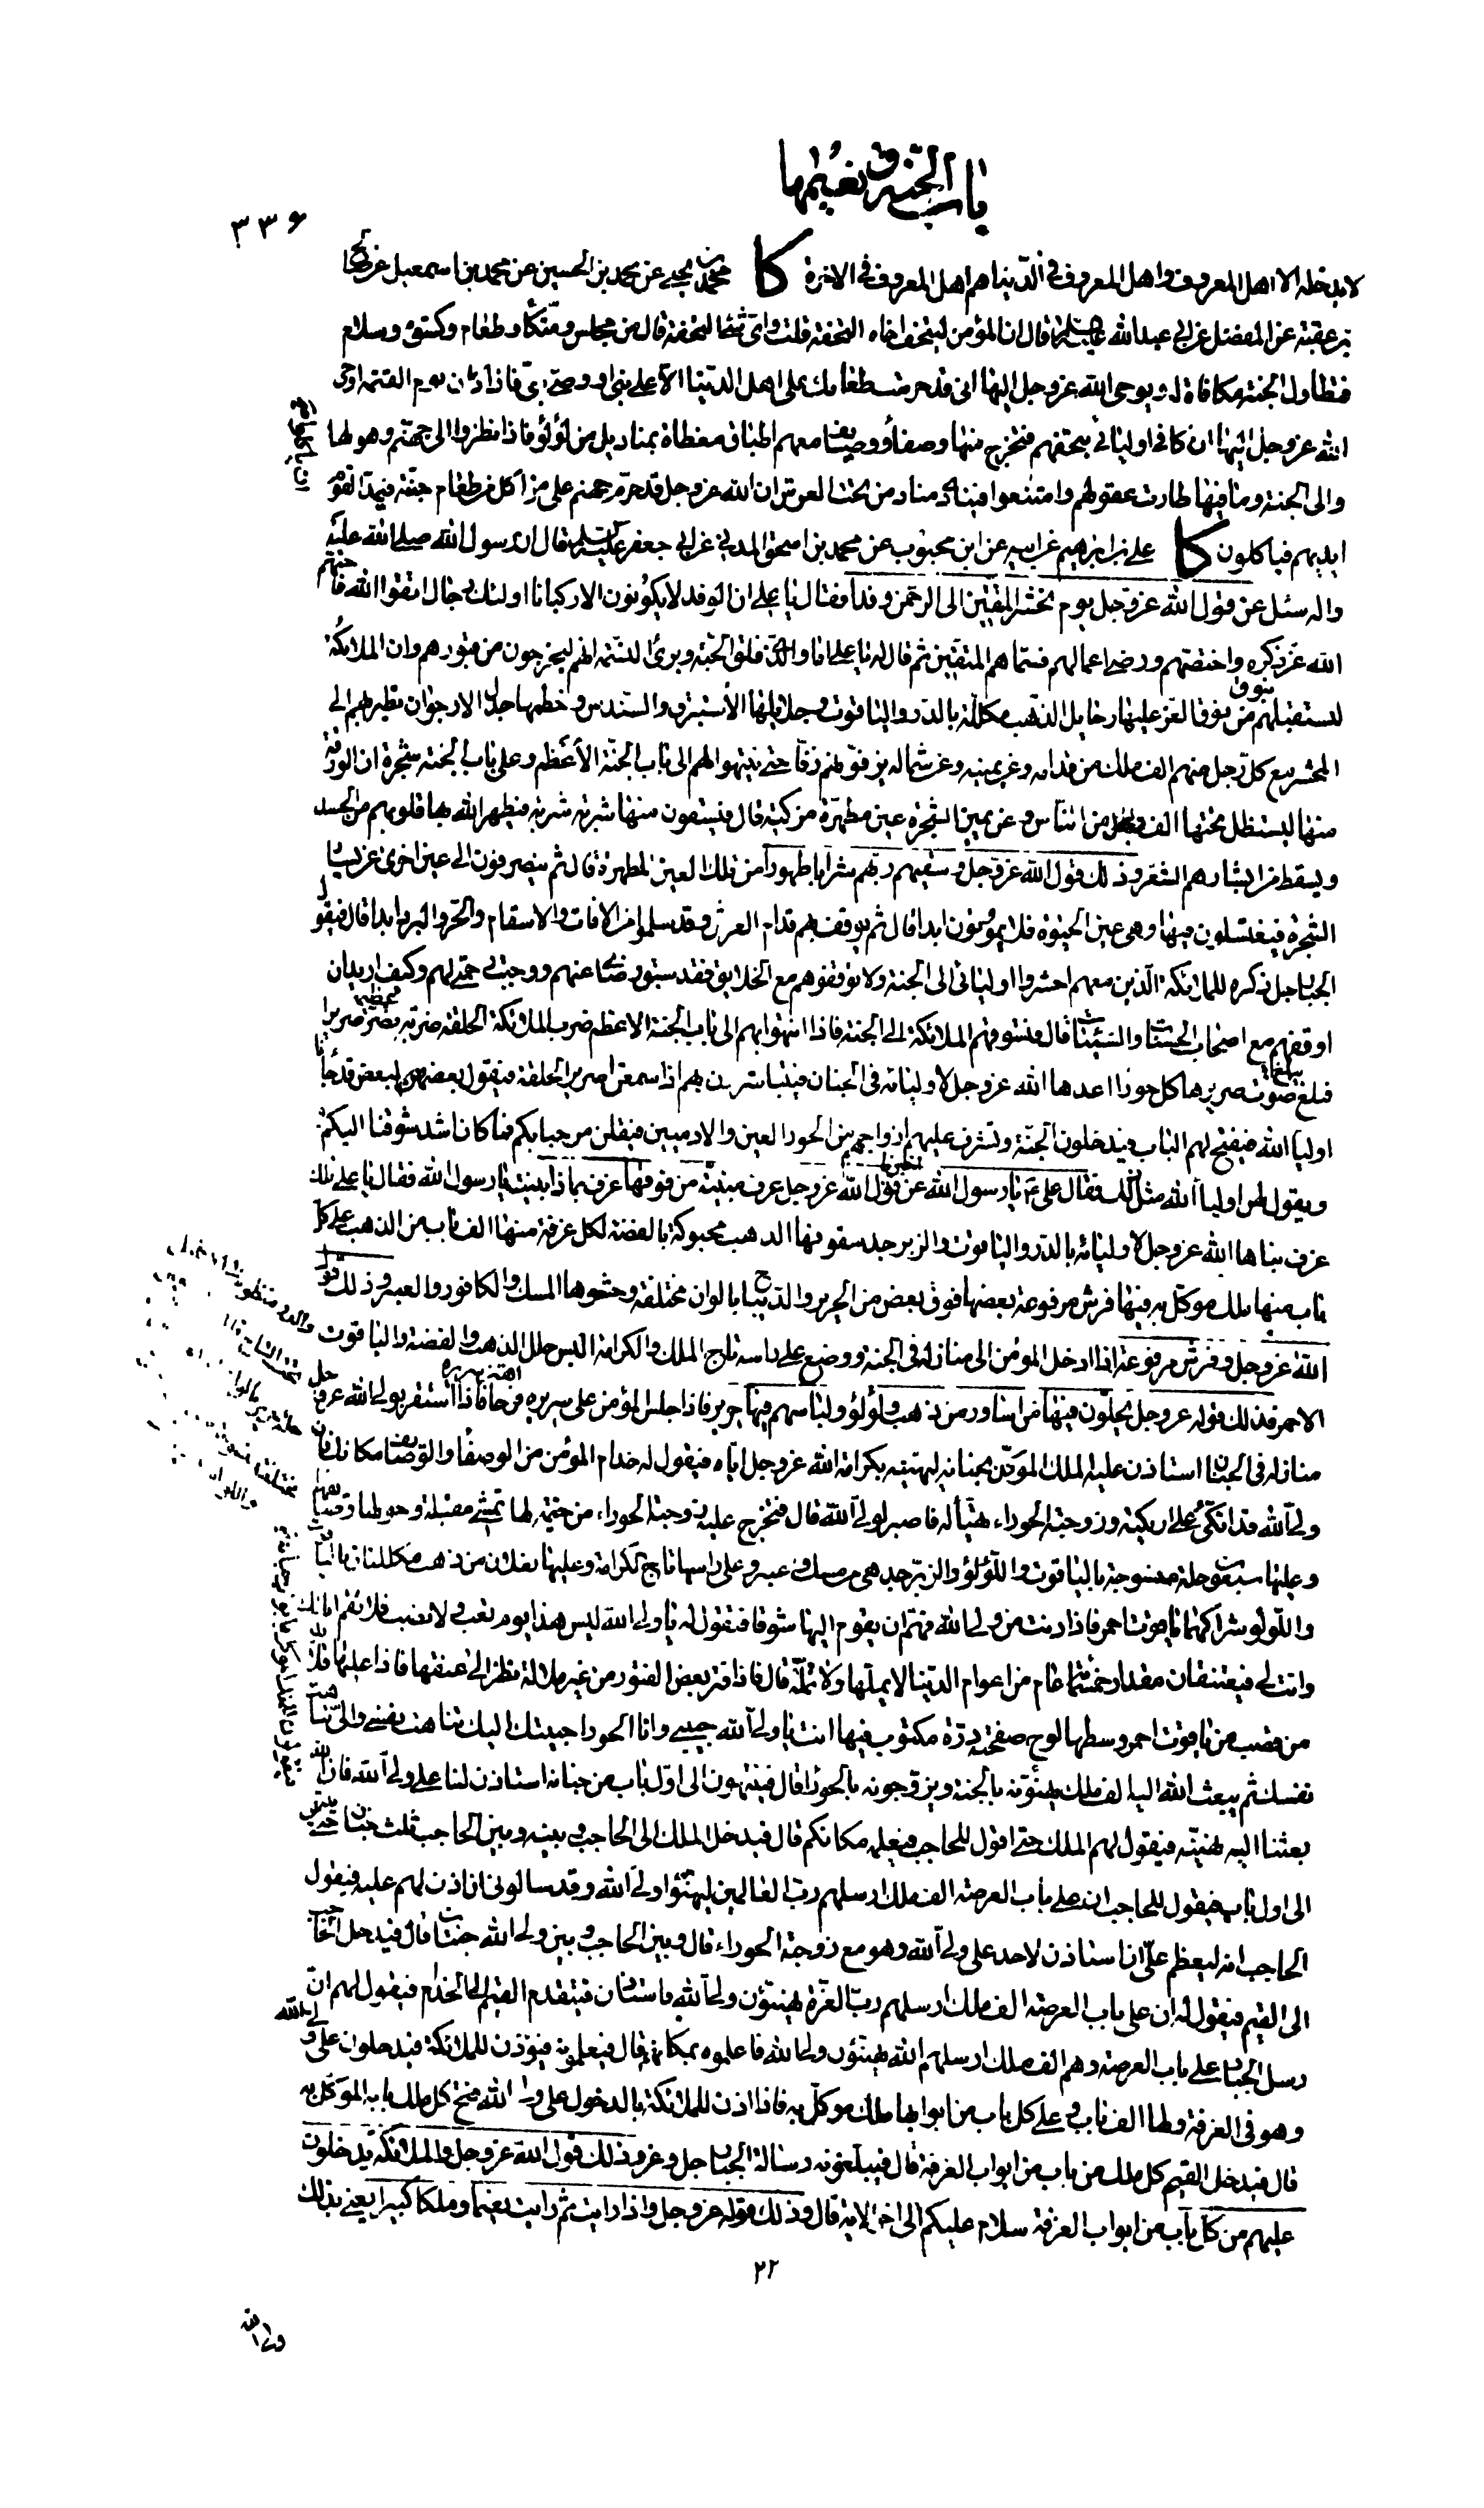 باب الجنة و نعيمها
٣٣۶
لا يدخله الا اهل المعروف و اهل المعروف في الدنيا هم اهل المعروف في الاخرة كا محمد بن يحيى عن محمد بن الحسين عن محمد بن اسمعيل عن صالح
بن عقبة عن المفضل عن ابي عبد الله عليه السلم قال ان المؤمن ليتحف اخاه التحفة قلت واي شئ التحفة قال من مجلس و متكأ و طعام و كسوة و سلام
فتطاول الجنة مكافاة له و يوحي الله عز و جل اليها اني قد حرمت طعامك على اهل الدنيا الا على نبي او وصي نبي فاذا كان يوم القيمة اوحى
الله عز و جل اليها ان كافي اوليائي بتحفهم فتخرج منها وصفاء و وصايف معهم اطباق مغطاة بمناديل من لؤلؤ فاذا نظروا الى جهنم و هولها
والى الجنة و ما فيها طارت عقولهم و امتنعوا فينادي مناد من تحت العرش ان الله عز و جل قد حرم جهنم على من اكل من طعام جنته فيمد القوم
ايديهم فياكلون كا علي بن ابراهيم عن ابيه عن ابن محبوب عن محمد بن اسحق المدني عن ابي جعفر عليه السلم قال ان رسول الله صلى الله عليه
واله سئل عن قول الله عز و جل يوم نحشر المتقين الى الرحمن وفدا فقال يا علي ان الوفد لا يكونون الا ركبانا اولئك رجال اتقوا الله فاحبهم
الله عز ذكره و اختصهم و رضي اعمالهم فسماهم المتقين ثم قال له يا علي اما و الذي فلق الحبة و برئ النسمة انهم ليخرجون من قبورهم و ان الملائكة
لتستقبلهم بنوق من نوق العز عليها رحايل الذهب مكللة بالدر و الياقوت و جلايلها الاستبرق و السندس و خطمها جدل الارجوان تطير بهم الى
المحشر مع كل رجل منهم الف ملك من قدامه و عن يمينه و عن شماله يزفونهم زفا حتى ينتهوا بهم الى باب الجنة الاعظم و على باب الجنة شجرة ان الورقة
منها ليستظل تحتها الف رجل من الناس و عن يمين الشجرة عين مطهرة مزكية قال فيسقون منها شربة شربة فيطهر الله بها قلوبهم من الحسد
و يسقط من ابشارهم الشعر و ذلك قول الله عز و جل و سقيهم ربهم شرابا طهورا من تلك العين المطهرة قال ثم ينصرفون الى عين اخرى عن يسار
الشجرة فيغتسلون فيها و هي عين الحيوة فلا يموتون ابدا قال ثم يوقف بهم قدام العرش و قد سلموا من الافات و الاسقام و الحر و البرد ابدا قال فيقول
الجبار جل ذكره للملائكة الذين معهم احشروا اوليائي الى الجنة و لا توقفوهم مع الخلايق فقد سبق رضاي عنهم و وجبت رحمتي لهم و كيف اريد ان
اوقفهم مع اصحاب الحسنات و السيئات قال فتسوقهم الملائكة الى الجنة فاذا انتهوا بهم الى باب الجنة الاعظم ضرب الملائكة الحلقة ضربة تصر صريرا
فبلغ صوت صريرها كل حوراء اعدها الله عز و جل لاوليائه في الجنان فيتباشرن بهم اذا سمعن صرير الحلقة فيقول بعضهن لبعض قد جاءنا
اولياء الله فيفتح لهم الباب فيدخلون الجنة و تشرف عليهم ازواجهم من الحور العين و الادميين فيقلن مرحبا بكم فما كان اشد شوقنا اليكم
و يقول لهن اولياء الله مثل ذلك فقال علي ع يا رسول الله اخبرنا عن قول الله عز و جل غرف مبنية من فوقها غرف بماذا بنيت يا رسول الله فقال يا علي تلك
غرف بناها الله عز و جل لاوليائه بالدر و الياقوت و الزبرجد سقوفها الذهب محبوكة بالفضة لكل غرفة منها الف باب من الذهب على كل
باب منها ملك موكل به فيها فرش مرفوعة بعضها فوق بعض من الحرير و الديباج بالوان مختلفة و حشوها المسك و الكافور و العنبر و ذلك قول
الله عز و جل و فرش مرفوعة اذا ادخل المؤمن الى منازله في الجنة و وضع على راسه تاج الملك و الكرامة البس حلل الذهب و الفضة و الياقوت
الاحمر فذلك قوله عز و جل يحلون فيها من اساور من ذهب و لؤلؤ و لباسهم فيها حرير فاذا جلس المؤمن على سريره اهتز سريره فرحا فاذا استقر بولي الله عز و جل
منازله في الجنان استاذن عليه الملك الموكل بجنانه ليهنيه بكرامة الله عز و جل اياه فيقول له خدام المؤمن من الوصفاء و الوصايف مكانك فان
ولي الله قد اتكى على اريكته و زوجته الحوراء تهيأ له فاصبر لولي الله قال فتخرج عليه زوجته الحوراء من خيمة لها تمشي مقبلة و حولها وصايفها
و عليها سبعون حلة منسوجة بالياقوت و اللؤلؤ و الزبرجد هي من مسك و عنبر و على راسها تاج الكرامة و عليها نعلان من ذهب مكللتان بالياقوت
و اللؤلؤ شراكهما ياقوت احمر فاذا دنت من ولي الله فهم ان يقوم اليها شوقا فتقول له يا ولي الله ليس هذا يوم تعب و لا نصب فلا تقم انا لك
و انت لي فيعتنقان مقدار خمسمائة عام من اعوام الدنيا لا يملها و لا تمله قال فاذا فتر بعض الفتور من غير ملالة نظر الى عنقها فاذا عليها قلائد
من قصب من ياقوت احمر وسطها لوح صفحته درة مكتوب فيها انت يا ولي الله حبيبي و انا الحوراء حبيبتك اليك تناهت نفسي و الي تناهت
نفسك ثم يبعث الله اليه الف ملك يهنؤنه بالجنة و يزوجونه بالحوراء قال فينتهون الى اول باب من جنانه استاذن لنا على ولي الله فان الله
بعثنا اليه نهنيه فيقول لهم الملك حتى اقول للحاجب فيعلمه مكانكم قال فيدخل الملك الى الحاجب و بينه و بين الحاجب ثلث جنان حتى ينتهي
الى اول باب فيقول للحاجب ان على باب العرصة الف ملك ارسلهم رب العالمين ليهنئوا ولي الله و قد سالوني ان اذن لهم عليه فيقول
الحاجب انه ليعظم علي ان استاذن لاحد على ولي الله و هو مع زوجته الحوراء قال و بين الحاجب و بين ولي الله جنتان قال فيدخل الحاجب
الى القيم فيقول له ان على باب العرصة الف ملك ارسلهم رب العزة يهنئون ولي الله فاستاذن فيتقدم القيم الى الخدام فيقول لهم ان
رسل الجبار على باب العرصة و هم الف ملك ارسلهم الله يهنئون ولي الله فاعلموه بمكانهم قال فيعلمونه فيؤذن للملائكة فيدخلون على ولي الله
و هو في الغرفة و لها الف باب و على كل باب من ابوابها ملك موكل به فاذا اذن للملائكة بالدخول على ولي الله فتح كل ملك بابه الموكل به
قال فيدخل القيم كل ملك من باب من ابواب الغرفة قال فيبلغونه رسالة الجبار جل و عز و ذلك قول الله عز و جل و الملائكة يدخلون
عليهم من كل باب من ابواب الغرفة سلام عليكم الى اخر الاية قال و ذلك قوله عز و جل و اذا رايت ثم رايت نعيما و ملكا كبيرا يعني بذلك
٢٢